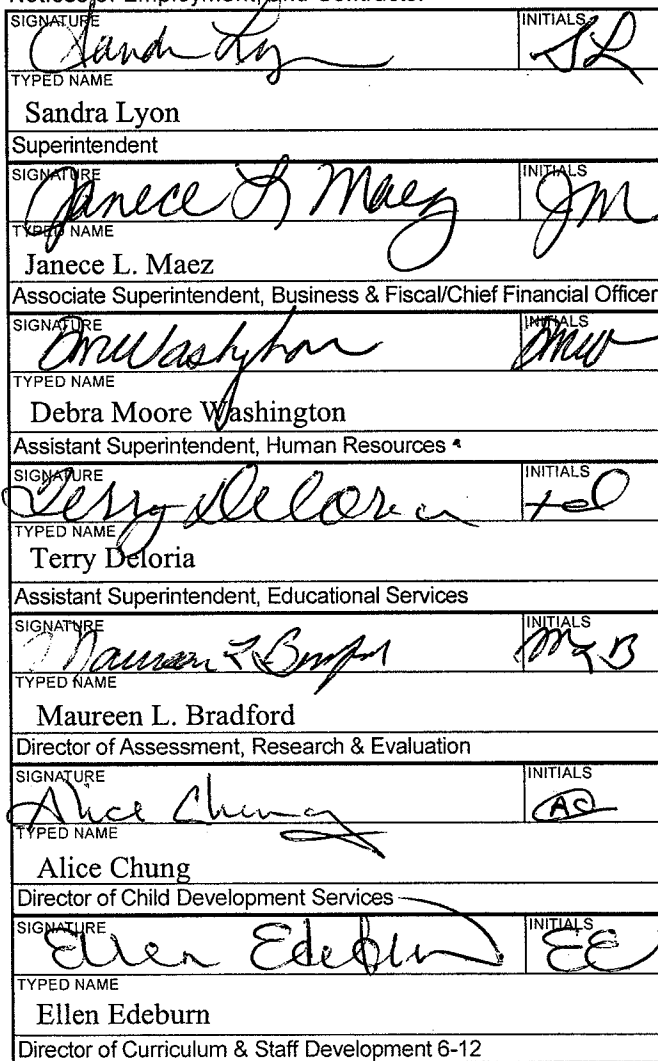 Notices of Employment, and Contracts.
SIGNATURE INITIALS
Sandra Lyon SL
TYPED NAME
Sandra Lyon
Superintendent
SIGNATURE INITIALS
Janece L Maez JM
TYPED NAME
Janece L. Maez
Associate Superintendent, Business & Fiscal/Chief Financial Officer
SIGNATURE INITIALS
DMWashington DMW
TYPED NAME
Debra Moore Washington
Assistant Superintendent, Human Resources
SIGNATURE INITIALS
Terry Deloria td
TYPED NAME
Terry Deloria
Assistant Superintendent, Educational Services
SIGNATURE INITIALS
Maureen L Bradford MLB
TYPED NAME
Maureen L. Bradford
Director of Assessment, Research & Evaluation
SIGNATURE INITIALS
Alice Chung AC
TYPED NAME
Alice Chung
Director of Child Development Services
SIGNATURE INITIALS
Ellen Edeburn EE
TYPED NAME
Ellen Edeburn
Director of Curriculum & Staff Development 6-12